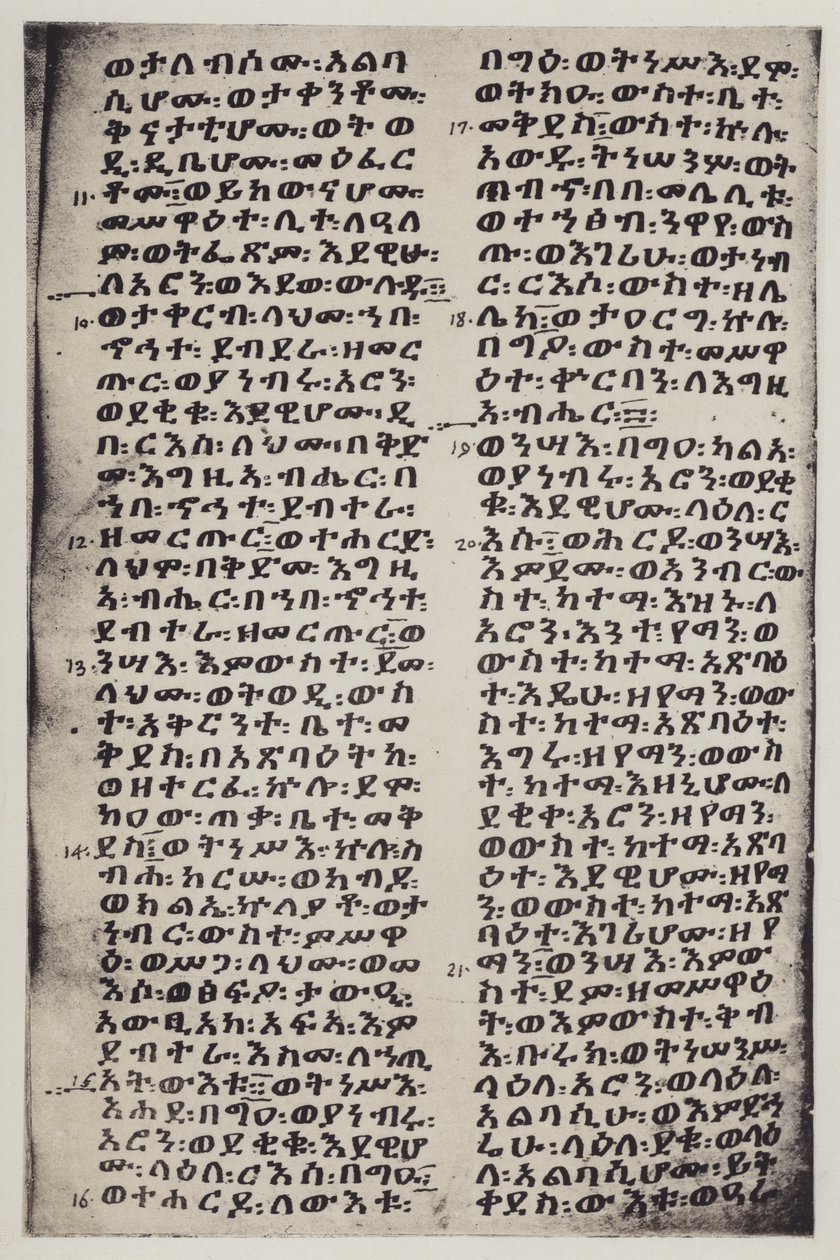 ወታለብሶሙ፡አልባ
ሲሆሙ፡ወታቀንቶሙ፡
ቅናታቲሆሙ፡ወትወ
ዲ፡ዲቤሆሙ፡መዕፈር
11. ቶሙ።ወይከውናሆሙ፡
መሥዋዕተ፡ሊተ፡ለዓለ
ም፡ወትፌጽም፡እደዊሁ፡
ለአሮን፡ወእደወ፡ውሉዱ።
10. ወታቀርብ፡ላህመ፡ኀበ፡
ኆኅተ፡ደብደራ፡ዘመር
ጡር፡ወያነብሩ፡አሮን፡
ወደቂቁ፡እደዊሆሙ፡ዲ
በ፡ርእሰ፡ለህሙ፡በቅድ
መ፡እግዚአ፡ብሔር፡በ
ኀበ፡ኆኅተ፡ደብተራ፡
12. ዘመርጡር።ወተሐርድ፡
ላህሞ፡በቅድመ፡እግዚ
አ፡ብሔር፡በኀበ፡ኆኅተ፡
ደብተራ፡ዘመርጡር።ወ
13. ንሣእ፡እምውስተ፡ደመ፡
ላህሙ፡ወትወዲ፡ውስ
ተ፡አቅርንተ፡ቤተ፡መ
ቅደስ፡በአጽባዕትከ፡
ወዘተርፈ፡ኵሎ፡ደሞ፡
ከዐው፡ጠቃ፡ቤተ፡መቅ
14. ደስ።ወትነሥእ፡ኵሎ፡ስ
ብሐ፡ከርሡ፡ወከብዶ፡
ወክልኤ፡ኵለያቶ፡ወታ
ነብር፡ውስተ፡ምሥዋ
ዕ፡ወሥጋ፡ላህሙ፡ወመ
እሶ፡ወፅፍዖ፡ታውዒ፡
አውፂአከ፡አፍአ፡እም
ደብተራ፡እስመ፡ለኀጢ
15. አት፡ውእቱ።ወትነሥእ፡
አሐደ፡በግዐ፡ወያነብሩ፡
አሮን፡ወደቂቁ፡እደዊሆ
ሙ፡ላዕለ፡ርእሰ፡በግዑ።
16. ወተሐርዶ፡ለውእቱ፡
በግዕ፡ወትነሥእ፡ደሞ፡
ወትክዑ፡ውስተ፡ቤተ፡
17. መቅደስ።ውስተ፡ኵሉ፡
አውዱ፡ትነሠንሦ፡ወት
ጠብኆ፡በበ፡መሌሊቱ፡
ወተኀፅብ፡ንዋየ፡ውስ
ጡ፡ወእገሪሁ፡ወታነብ
ር፡ርእሶ፡ውስተ፡ዘሌ
18. ሌከ።ወታዐርግ፡ኵሎ፡
በግዖ፡ውስተ፡መሥዋ
ዕተ፡ቍርባን፡ለእግዚ
አ፡ብሔር።
19. ወንሣእ፡በግዐ፡ካልአ፡
ወያነብሩ፡አሮን፡ወደቂ
ቁ፡እደዊሆሙ፡ላዕለ፡ር
20. እሱ።ወሕርዶ፡ወንሣእ፡
እምደሙ፡ወአንብር፡ው
ስተ፡ከተማ፡እዝኑ፡ለ
አሮን፡እንተ፡የማን፡ወ
ውስተ፡ከተማ፡አጽባዕ
ተ፡እዴሁ፡ዘየማን፡ወው
ስተ፡ከተማ፡አጽባዕተ፡
እግሩ፡ዘየማን፡ወውስ
ተ፡ከተማ፡እዘኒሆሙ፡ለ
ደቂቀ፡አሮን፡ዘየማን፡
ወውስተ፡ከተማ፡አጽባ
ዕተ፡እደዊሆሙ፡ዘየማ
ን፡ወውስተ፡ከተማ፡አጽ
ባዕተ፡እገሪሆሙ፡ዘየ
21. ማን።ወንሣእ፡እምው
ስተ፡ደም፡ዘመሥዋዕ
ት፡ወእምውስተ፡ቅብ
እ፡ቡሩክ፡ወትነሠንሥ፡
ላዕለ፡አሮን፡ወላዕለ፡
አልባሲሁ፡ወእምደኅ
ሬሁ፡ላዕለ፡ደቁ፡ወላዕ
ለ፡አልባሲሆሙ፡ይት
ቀደስ፡ውእቱ፡ወዓራ